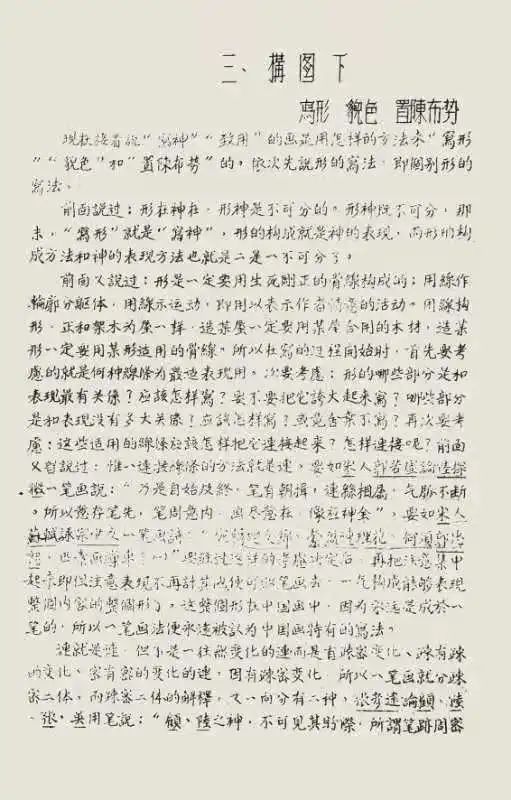 三、構图下
寫形 貌色 置陳布势
现在接着说“寫神”“致用”的画是用怎样的方法来“寫形
”“貌色”和“置陈布势”的。依次先說形的寫法，即個别形的
寫法。
前面说过：形在神在，形神是不可分的。形神既不可分，那
末，“寫形”就是“寫神”，形的构成就是神的表現，而形的构
成方法和神的表現方法也就是二是一不可分了。
前面又说过：形是一定要用生死刚正的骨線构成的；用線作
輪廓分躯体，用線示运动，即用以表示作者情意的活动。用線构
形，正和架木为屋一样，造某屋一定要用某屋合用的木材，造某
形一定要用某形适用的骨線。所以在寫的过程开始时，首先要考
慮的就是何种線條为最适表現用。次要考慮：形的哪些部分是和
表現最有关係？应該怎样寫？要不要把它誇大起来寫？哪些部分
是和表現没有多大关係？应該怎样寫？或竟舍棄不寫？再次要考
慮：这些适用的線條应該怎样把它連接起来？怎样連接呢？前面
又曾說过：惟一連接線條的方法就是連。要如宋人郭若虛論陸探
微一笔画説：“乃是自始及終，笔有朝揖，連綿相属，气脉不断
。所以意存笔先，笔周意内，画尽意在，像应神全”，要如宋人
蘇軾詠 一笔画詩：
要 过这样的考慮决定后，再把注意集中
起来即但注意表現不再計 便可 笔画去，一气构成能够表現
整個内容的整個形了。这整個形在中国画中，因为永远是成於一
笔的，所以一笔画法便永遠被认为中国画特有的寫法。
連就是連，但不是一往無变化的連而是有疎密变化、疎有疎
的变化、密有密的变化的連，因有疎密变化，所以一笔画就分疎
密二体。而疎密二体的解釋，又一向分有二种，張彦遠論顧、陸
、張、吳用笔说：“顧、陸之神，不可見其盼際，所謂筆跡周密